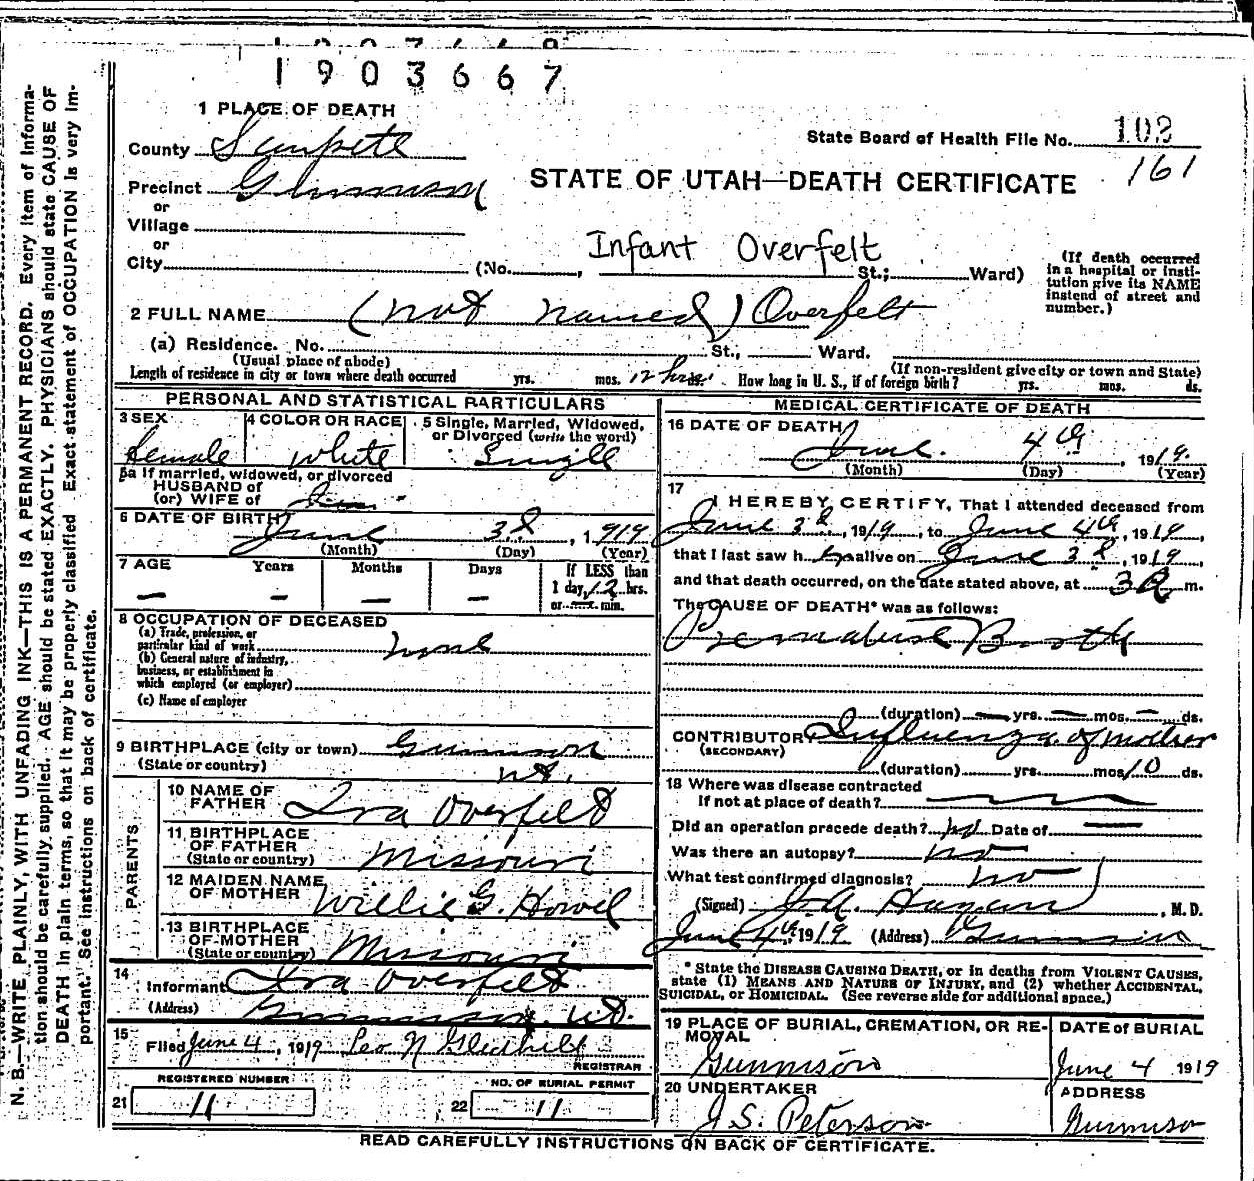 1903667
1 PLACE OF DEATH
County Sanpete
State Board of Health File No. 102
161
Precinct Gunnison
STATE OF UTAH—DEATH CERTIFICATE
or
Village
or
Infant Overfelt
City (No. , St.; Ward)
(If death occurred in a hospital or institution give its NAME instead of street and number.)
2 FULL NAME (not named) Overfelt
(a) Residence. No. St., Ward.
(Usual place of abode) (If non-resident give city or town and State)
Length of residence in city or town where death occurred yrs. mos. 12 hrs. How long in U. S., if of foreign birth? yrs. mos. ds.
PERSONAL AND STATISTICAL PARTICULARS
3 SEX 4 COLOR OR RACE 5 Single, Married, Widowed, or Divorced (write the word)
Female White Single
5a If married, widowed, or divorced
HUSBAND OF
(or) WIFE of
6 DATE OF BIRTH June 3d, 1919
(Month) (Day) (Year)
7 AGE Years Months Days If LESS than
— — — 1 day, 12 hrs.
or min.
8 OCCUPATION OF DECEASED
(a) Trade, profession, or
particular kind of work none
(b) General nature of industry,
business, or establishment in
which employed (or employer)
(c) Name of employer
9 BIRTHPLACE (city or town) Gunnison
(State or country) Ut.
PARENTS
10 NAME OF
FATHER Ira Overfelt
11 BIRTHPLACE
OF FATHER
(State or country) Missouri
12 MAIDEN NAME
OF MOTHER Willie G. Howel
13 BIRTHPLACE
OF MOTHER
(State or country) Missouri
14
Informant Ira Overfelt
(Address) Gunnison, Ut.
15 Filed June 4, 1919 Leo N Gledhill
REGISTRAR
REGISTERED NUMBER NO. OF BURIAL PERMIT
21 11 22 11
MEDICAL CERTIFICATE OF DEATH
16 DATE OF DEATH June 4th, 1919.
(Month) (Day) (Year)
17
I HEREBY CERTIFY, That I attended deceased from
June 3d, 1919, to June 4th, 1919
that I last saw h er alive on June 3d, 1919,
and that death occurred, on the date stated above, at 3 a m.
The CAUSE OF DEATH* was as follows:
Premature Birth
(duration) — yrs. — mos. — ds.
CONTRIBUTORY Influenza of mother
(SECONDARY)
(duration) yrs. mos. 10 ds.
18 Where was disease contracted
If not at place of death?
Did an operation precede death? no Date of —
Was there an autopsy? no
What test confirmed diagnosis? no
(Signed) J. A. Hagan, M. D.
June 4th, 1919 (Address) Gunnison
* State the DISEASE CAUSING DEATH, or in deaths from VIOLENT CAUSES,
state (1) MEANS AND NATURE OF INJURY, and (2) whether ACCIDENTAL,
SUICIDAL, or HOMICIDAL. (See reverse side for additional space.)
19 PLACE OF BURIAL, CREMATION, OR REMOVAL DATE of BURIAL
Gunnison June 4 1919
20 UNDERTAKER ADDRESS
J. S. Peterson Gunnison
READ CAREFULLY INSTRUCTIONS ON BACK OF CERTIFICATE.
N. B.—WRITE PLAINLY, WITH UNFADING INK—THIS IS A PERMANENT RECORD. Every item of informa-
tion should be carefully supplied. AGE should be stated EXACTLY. PHYSICIANS should state CAUSE OF
DEATH in plain terms, so that it may be properly classified. Exact statement of OCCUPATION is very im-
portant. See instructions on back of certificate.